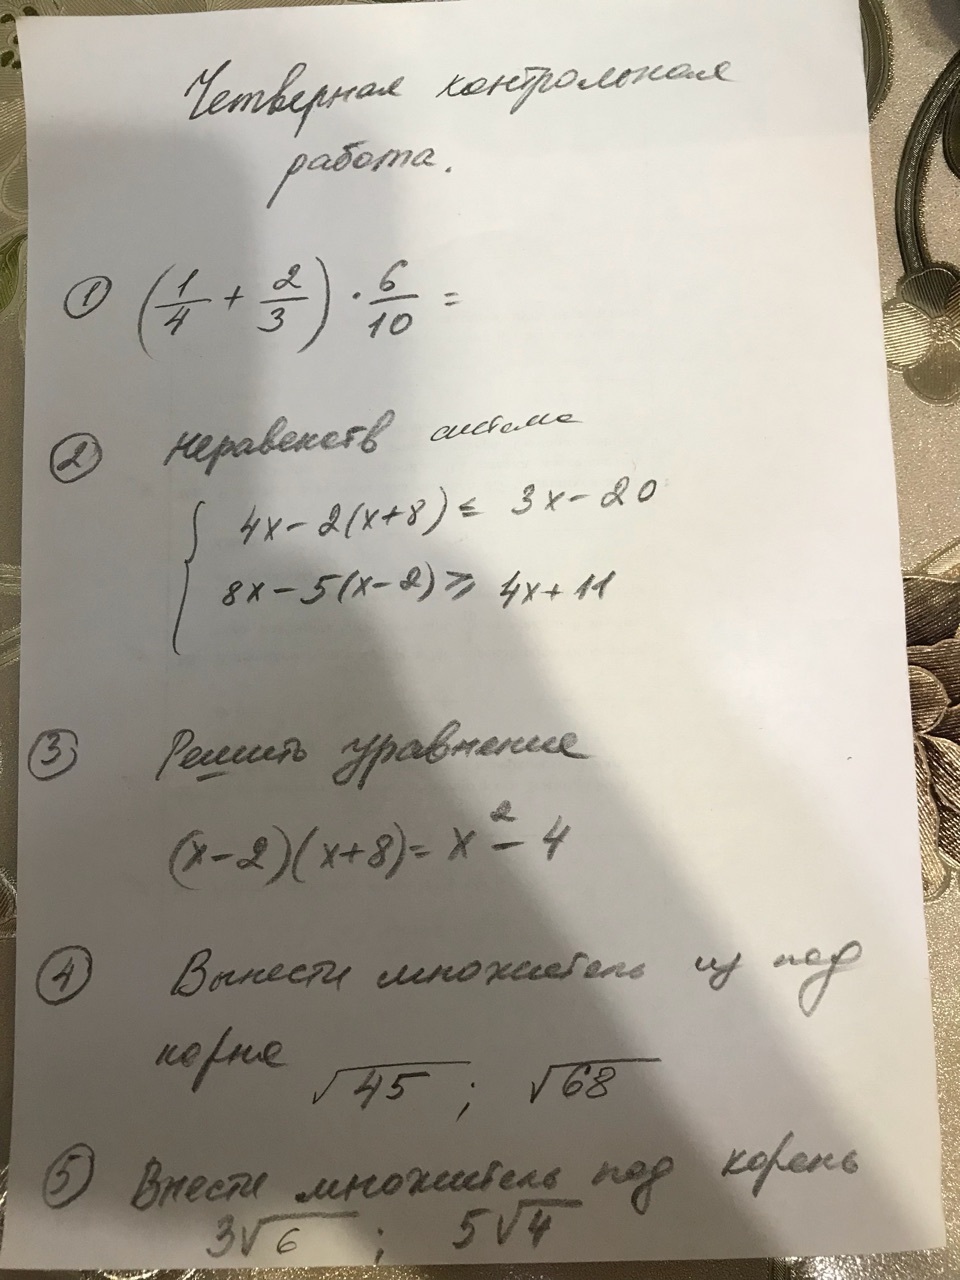 Четверная контрольная
работа.
① (1/4 + 2/3) · 6/10 =
② Неравенств система
{ 4x - 2(x+8) ≤ 3x - 20
8x - 5(x-2) ≥ 4x + 11
③ Решить уравнение
(x-2)(x+8) = x² - 4
④ Вынести множитель из под
корня √45 ; √68
⑤ Внести множитель под корень
3√6 ; 5√4